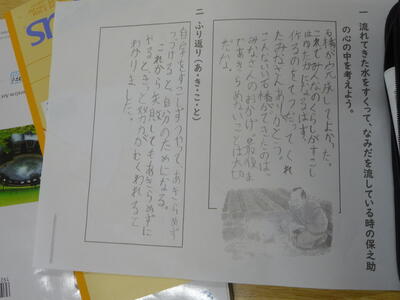 一 流れてきた水をすくって、なみだを流している時の保之助
の心の中を考えよう。
石橋が完成してよかった。
これでみんなのくらしがすこし
はゆたかになるはず。
作るのをてつだってくれ
たみなさんありがとう。
こんないい石橋ができたのは、
みなさんのおかげ。最後ま
であきらめないことは大切
だな。
二 ふり返り(あ・き・こ・と)
自分をすこしずつやってあきらめず
つづけると、自分のためになる。
これから失敗してもあきらめずに
やると、きっと努力がむくわれると
わかりました。